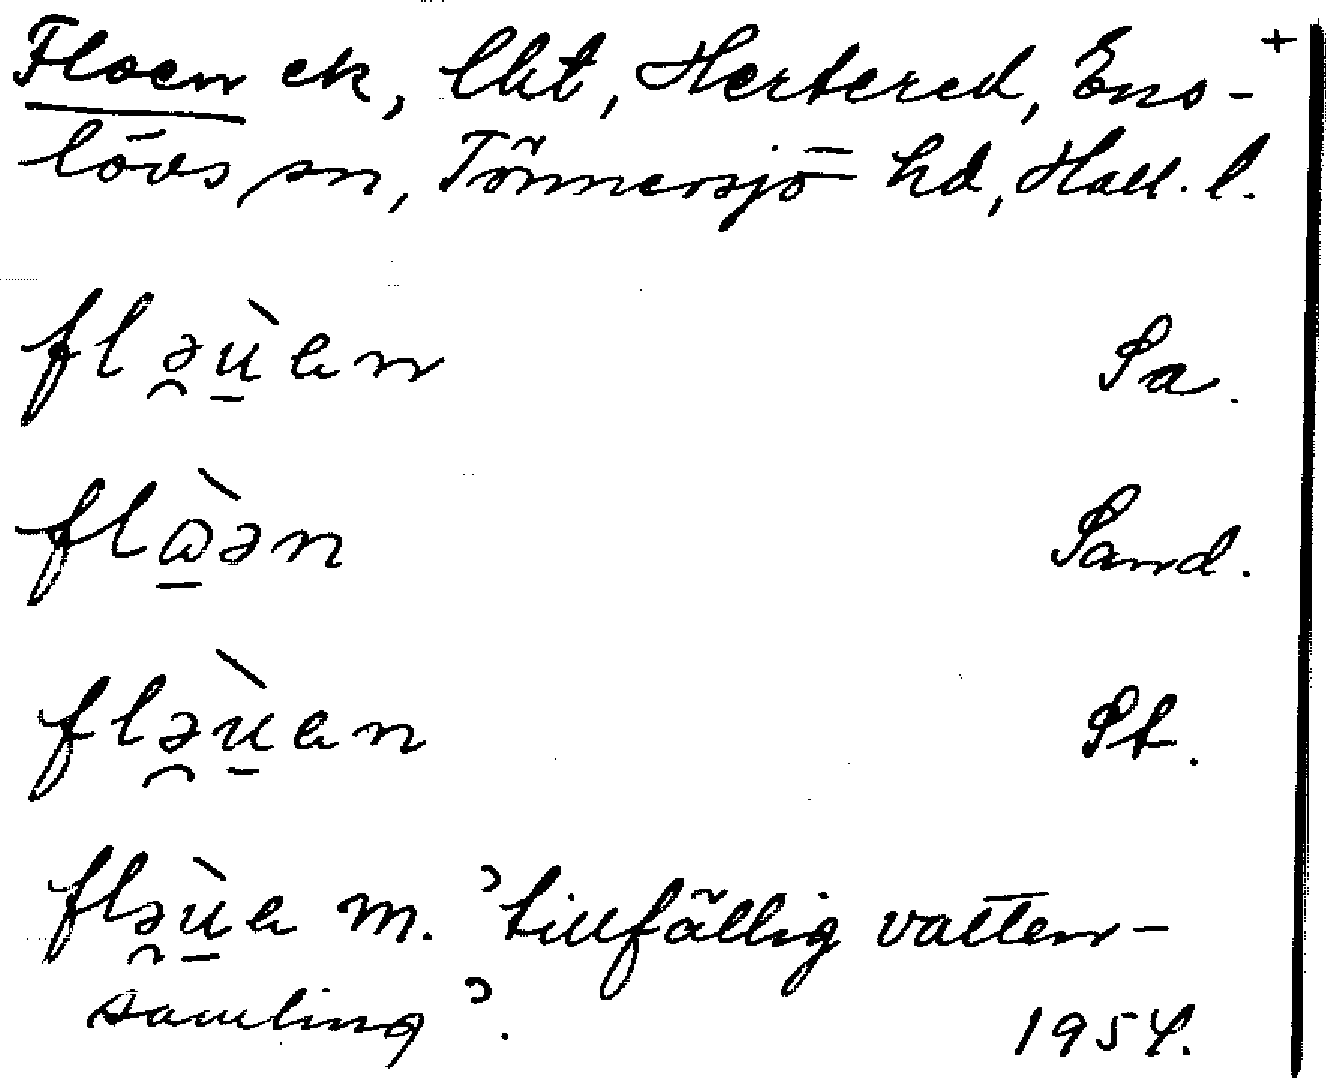 Floen ek, lht, Hertered, Ens- +
lövs sn, Tönnersjö hd, Hall. l.
flə̯ù̱en Sa.
flà̱ən Sand.
flə̯ù̱en St.
flə̯ù̱e m. 'tillfällig vatten-
samling'. 1954.